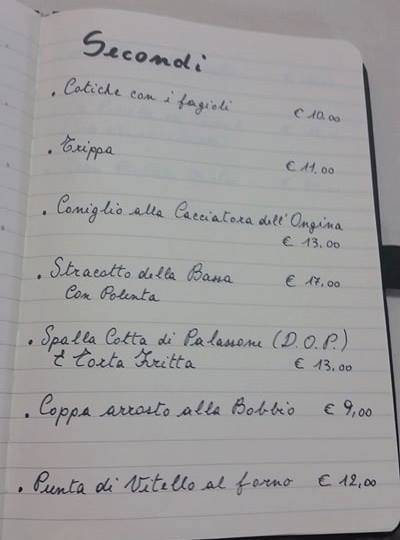 Secondi
• Cotiche con i fagioli € 10.00
• Trippa
€ 11.00
• Coniglio alla Cacciatora dell'Ongina
€ 13.00
• Stracotto della Bassa € 17,00
Con Polenta
• Spalla Cotta di Palasone (D.O.P.)
E Torta Fritta € 13,00
• Coppa arrosto alla Bobbio € 9,00
• Punta di Vitello al forno € 12,00